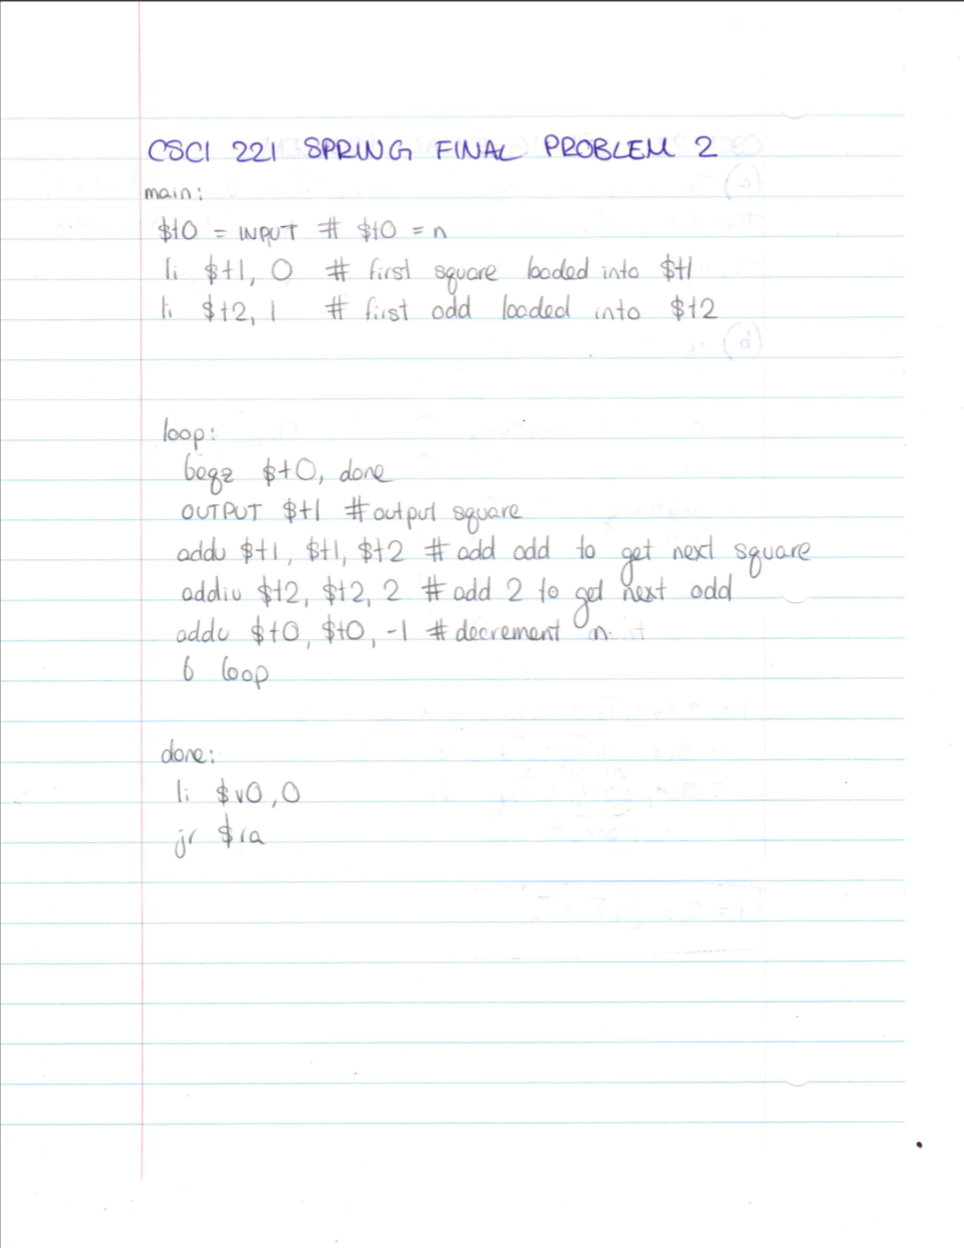 CSCI 221 SPRING FINAL PROBLEM 2
main:
$t0 = INPUT # $t0 = n
li $t1, 0 # first square loaded into $t1
li $t2, 1 # first odd loaded into $t2
loop:
beqz $t0, done
OUTPUT $t1 # output square
addu $t1, $t1, $t2 # add odd to get next square
addiu $t2, $t2, 2 # add 2 to get next odd
addu $t0, $t0, -1 # decrement n
b loop
done:
li $v0, 0
jr $ra